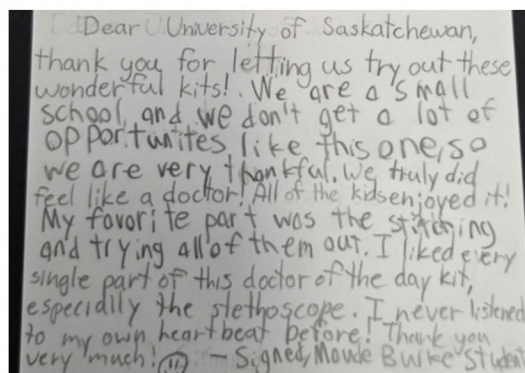 Dear University of Saskatchewan,
thank you for letting us try out these
wonderful kits!. We are a small
school, and we don't get a lot of
opportunites like this one, so
we are very thankful. We truly did
feel like a doctor! All of the kids enjoyed it!
My favorite part was the stitching
and trying all of them out. I liked every
single part of this doctor of the day kit,
especially the stethoscope. I never listened
to my own heartbeat before! Thank you
very much! — Signed, Maude Burke Student